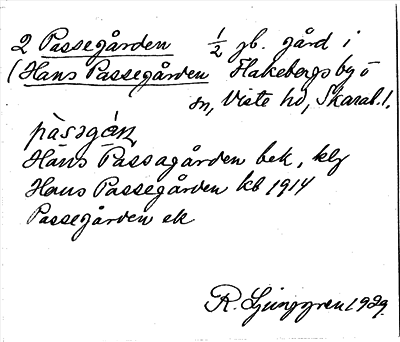 2 Passegården ½ gb. gård i
(Hans Passegården Flakebergs by o
sn, Viste hd, Skarab. l.
Hans Passagården bek, klg
Hans Passegården kb 1914
Passegården ek
R. Ljunggren 1929.